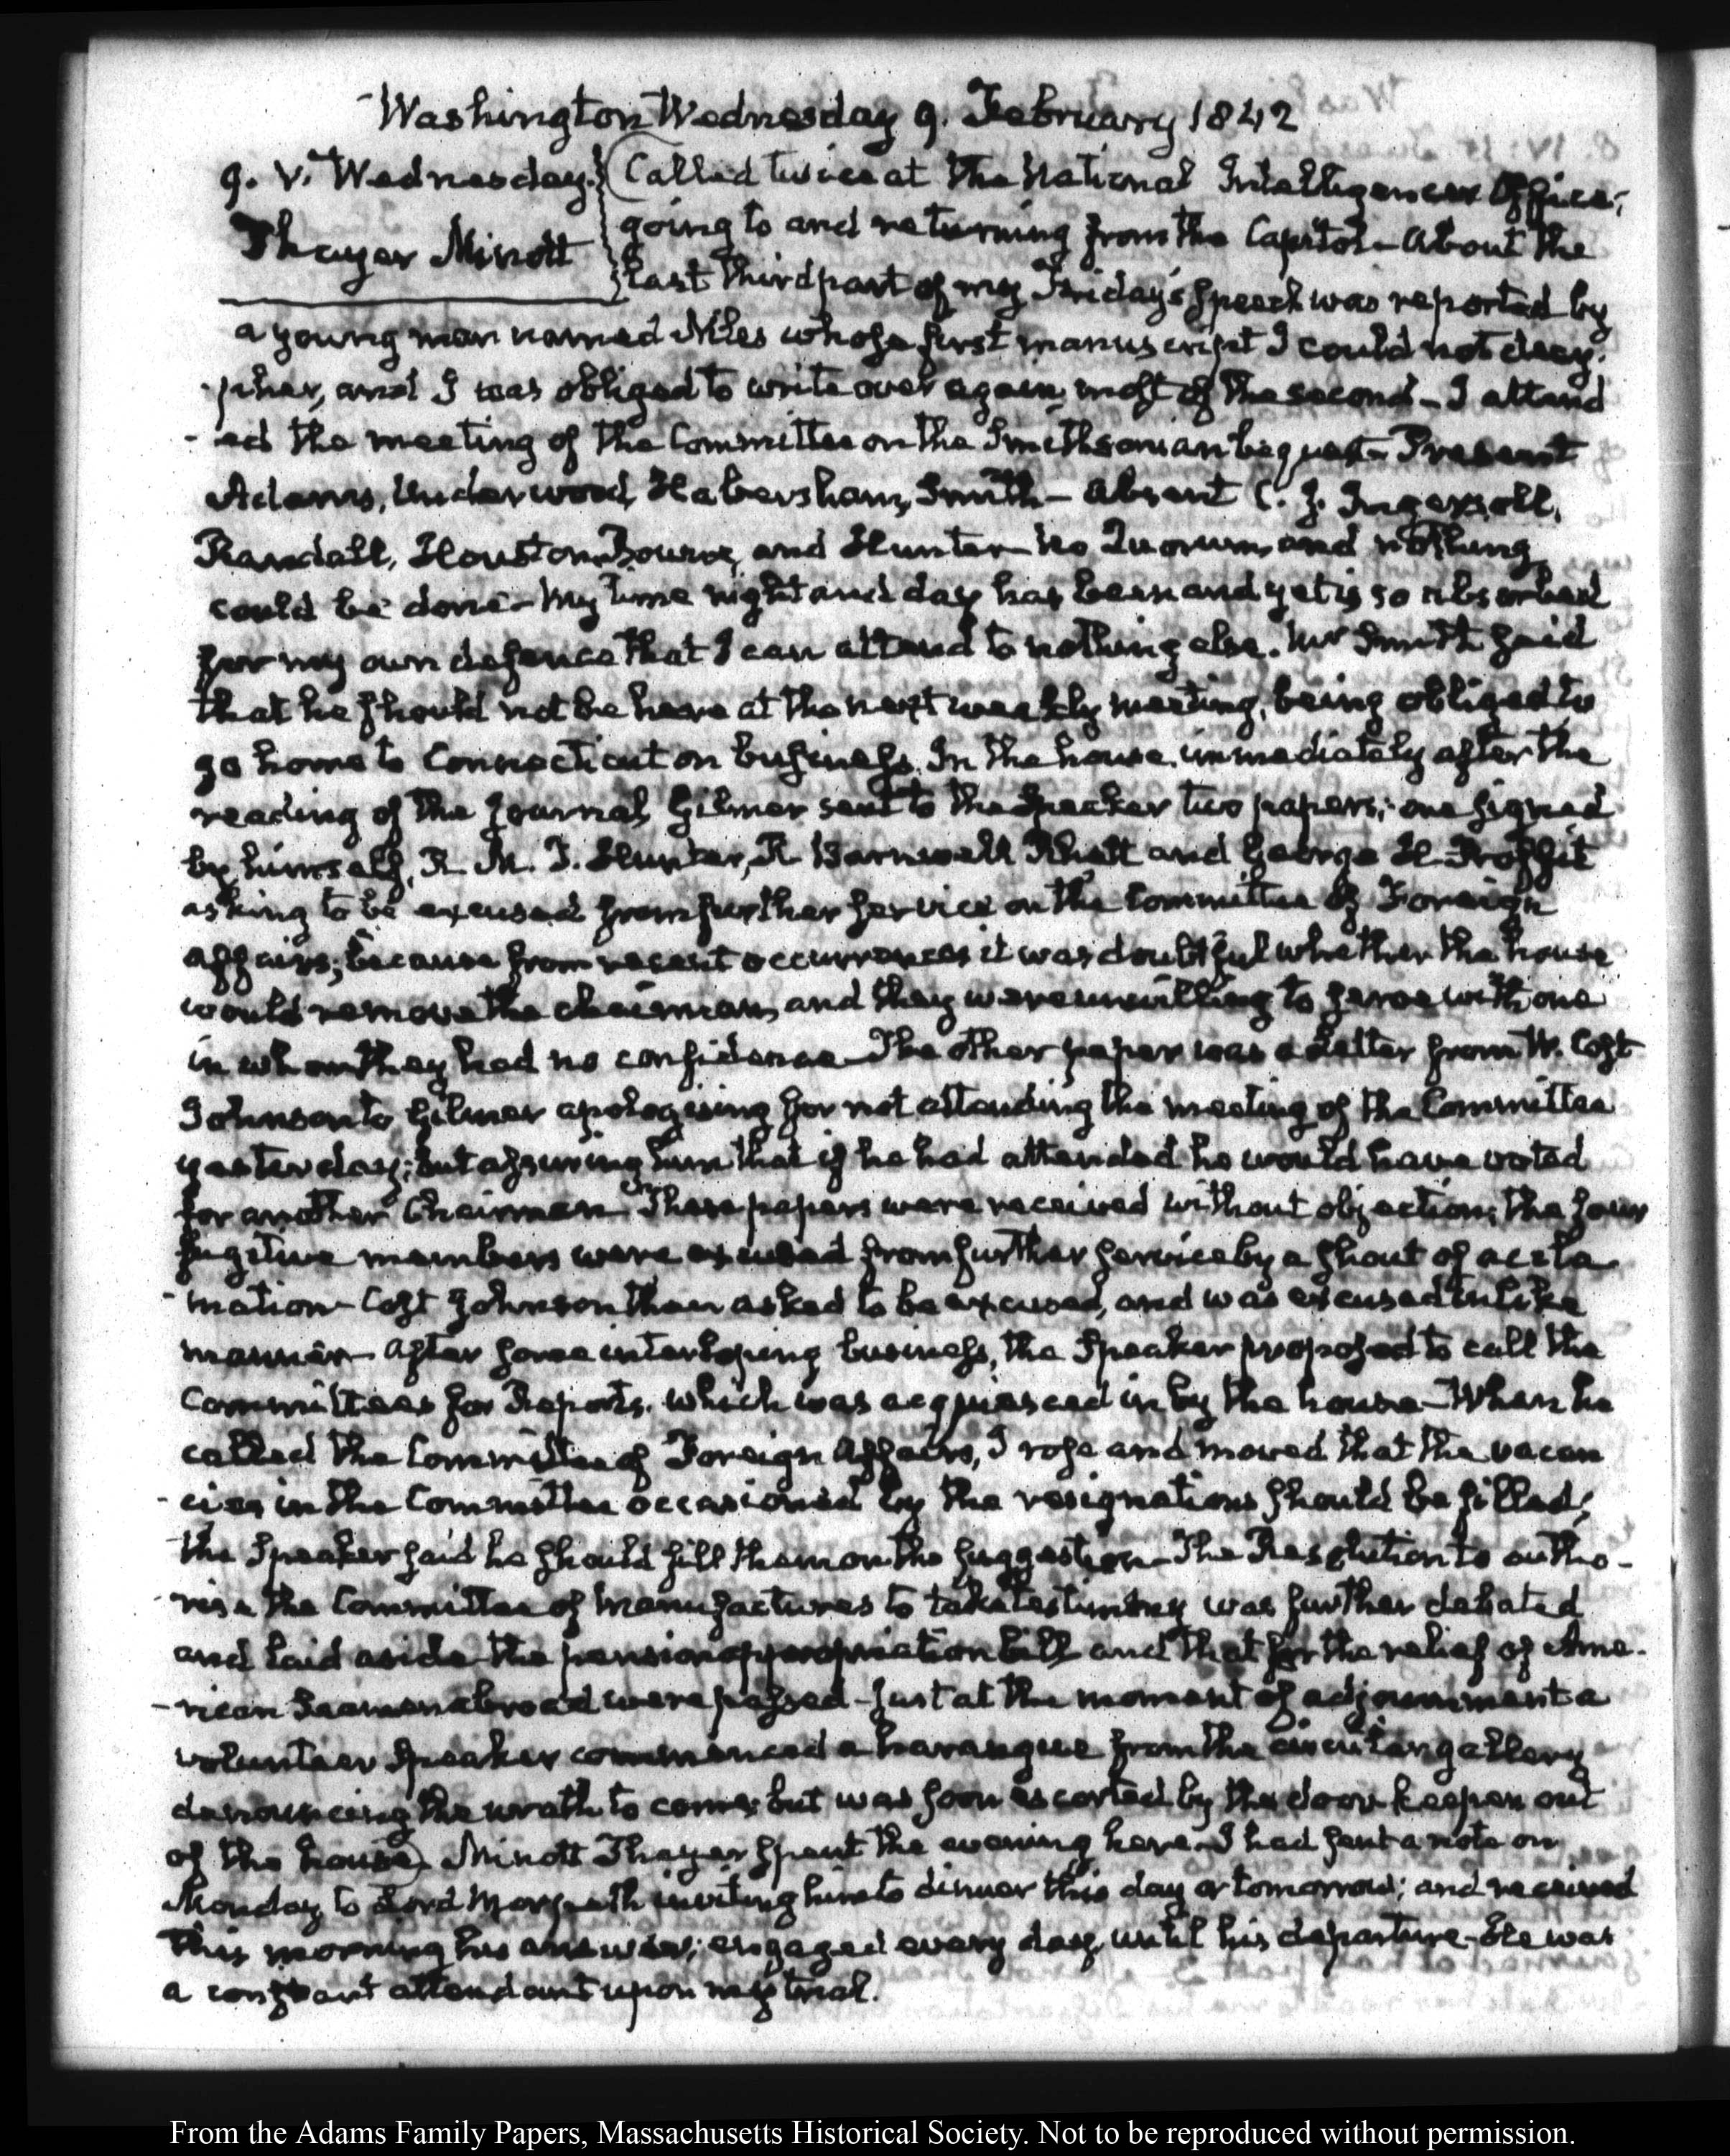 Washington Wednesday 9. February 1842
9. V. Wednesday.
Thayer Minott
Called twice at the National Intelligencer Office;
going to and returning from the Capitol - About the
last third part of my Friday's speech was reported by
a young man named Niles whose first manuscript I could not decy-
-pher, and I was obliged to write over again most of the second - I attend
-ed the meeting of the Committee on the Smithsonian bequest - Present
Adams, Underwood, Habersham, Smith - Absent C. J. Ingersoll,
Randall, Houston, Bowne, and Hunter - No Quorum, and nothing
could be done - My time night and day has been and yet is so absorbed
for my own defence that I can attend to nothing else. Mr Smith said
that he should not be here at the next weekly meeting, being obliged to
go home to Connecticut on business. In the house immediately after the
reading of the journal Gilmer sent to the Speaker two papers; one signed
by himself, R. M. T. Hunter, R Barnwell Rhett and George H. Proffit
asking to be excused from further service on the Committee of Foreign
Affairs; because from recent occurrences it was doubtful whether the house
would remove the chairman, and they were unwilling to serve with one
in whom they had no confidence - The other paper was a Letter from W. Cost
Johnson to Gilmer apologising for not attending the meeting of the Committee
yesterday; but assuring him that if he had attended he would have voted
for another Chairman - These papers were received without objection; the four
fugitive members were excused from further service by a shout of accla
-mation - Cost Johnson then asked to be excused, and was excused in like
manner - After some interloping business, the Speaker proposed to call the
Committees for Reports. which was acquiesced in by the house - When he
called the Committee of Foreign Affairs, I rose and moved that the vacan
-cies in the Committee occasioned by the resignations should be filled;
the Speaker said he should fill them on the suggestion - The Resolution to autho-
-rise the Committee of Manufactures to take testimony was further debated
and laid aside - the pension appropriation bill and that for the relief of Ame-
-rican Seamen abroad were passed - Just at the moment of adjournment a
volunteer Speaker commenced a harangue from the circular gallery
denouncing the wrath to come; but was soon escorted by the door keeper out
of the house) Minott Thayer spent the evening here - I had sent a note on
Monday to Lord Morpeth inviting him to dinner this day or tomorrow; and received
this morning his answer; engaged every day until his departure - He was
a constant attendant upon my trial.
From the Adams Family Papers, Massachusetts Historical Society. Not to be reproduced without permission.